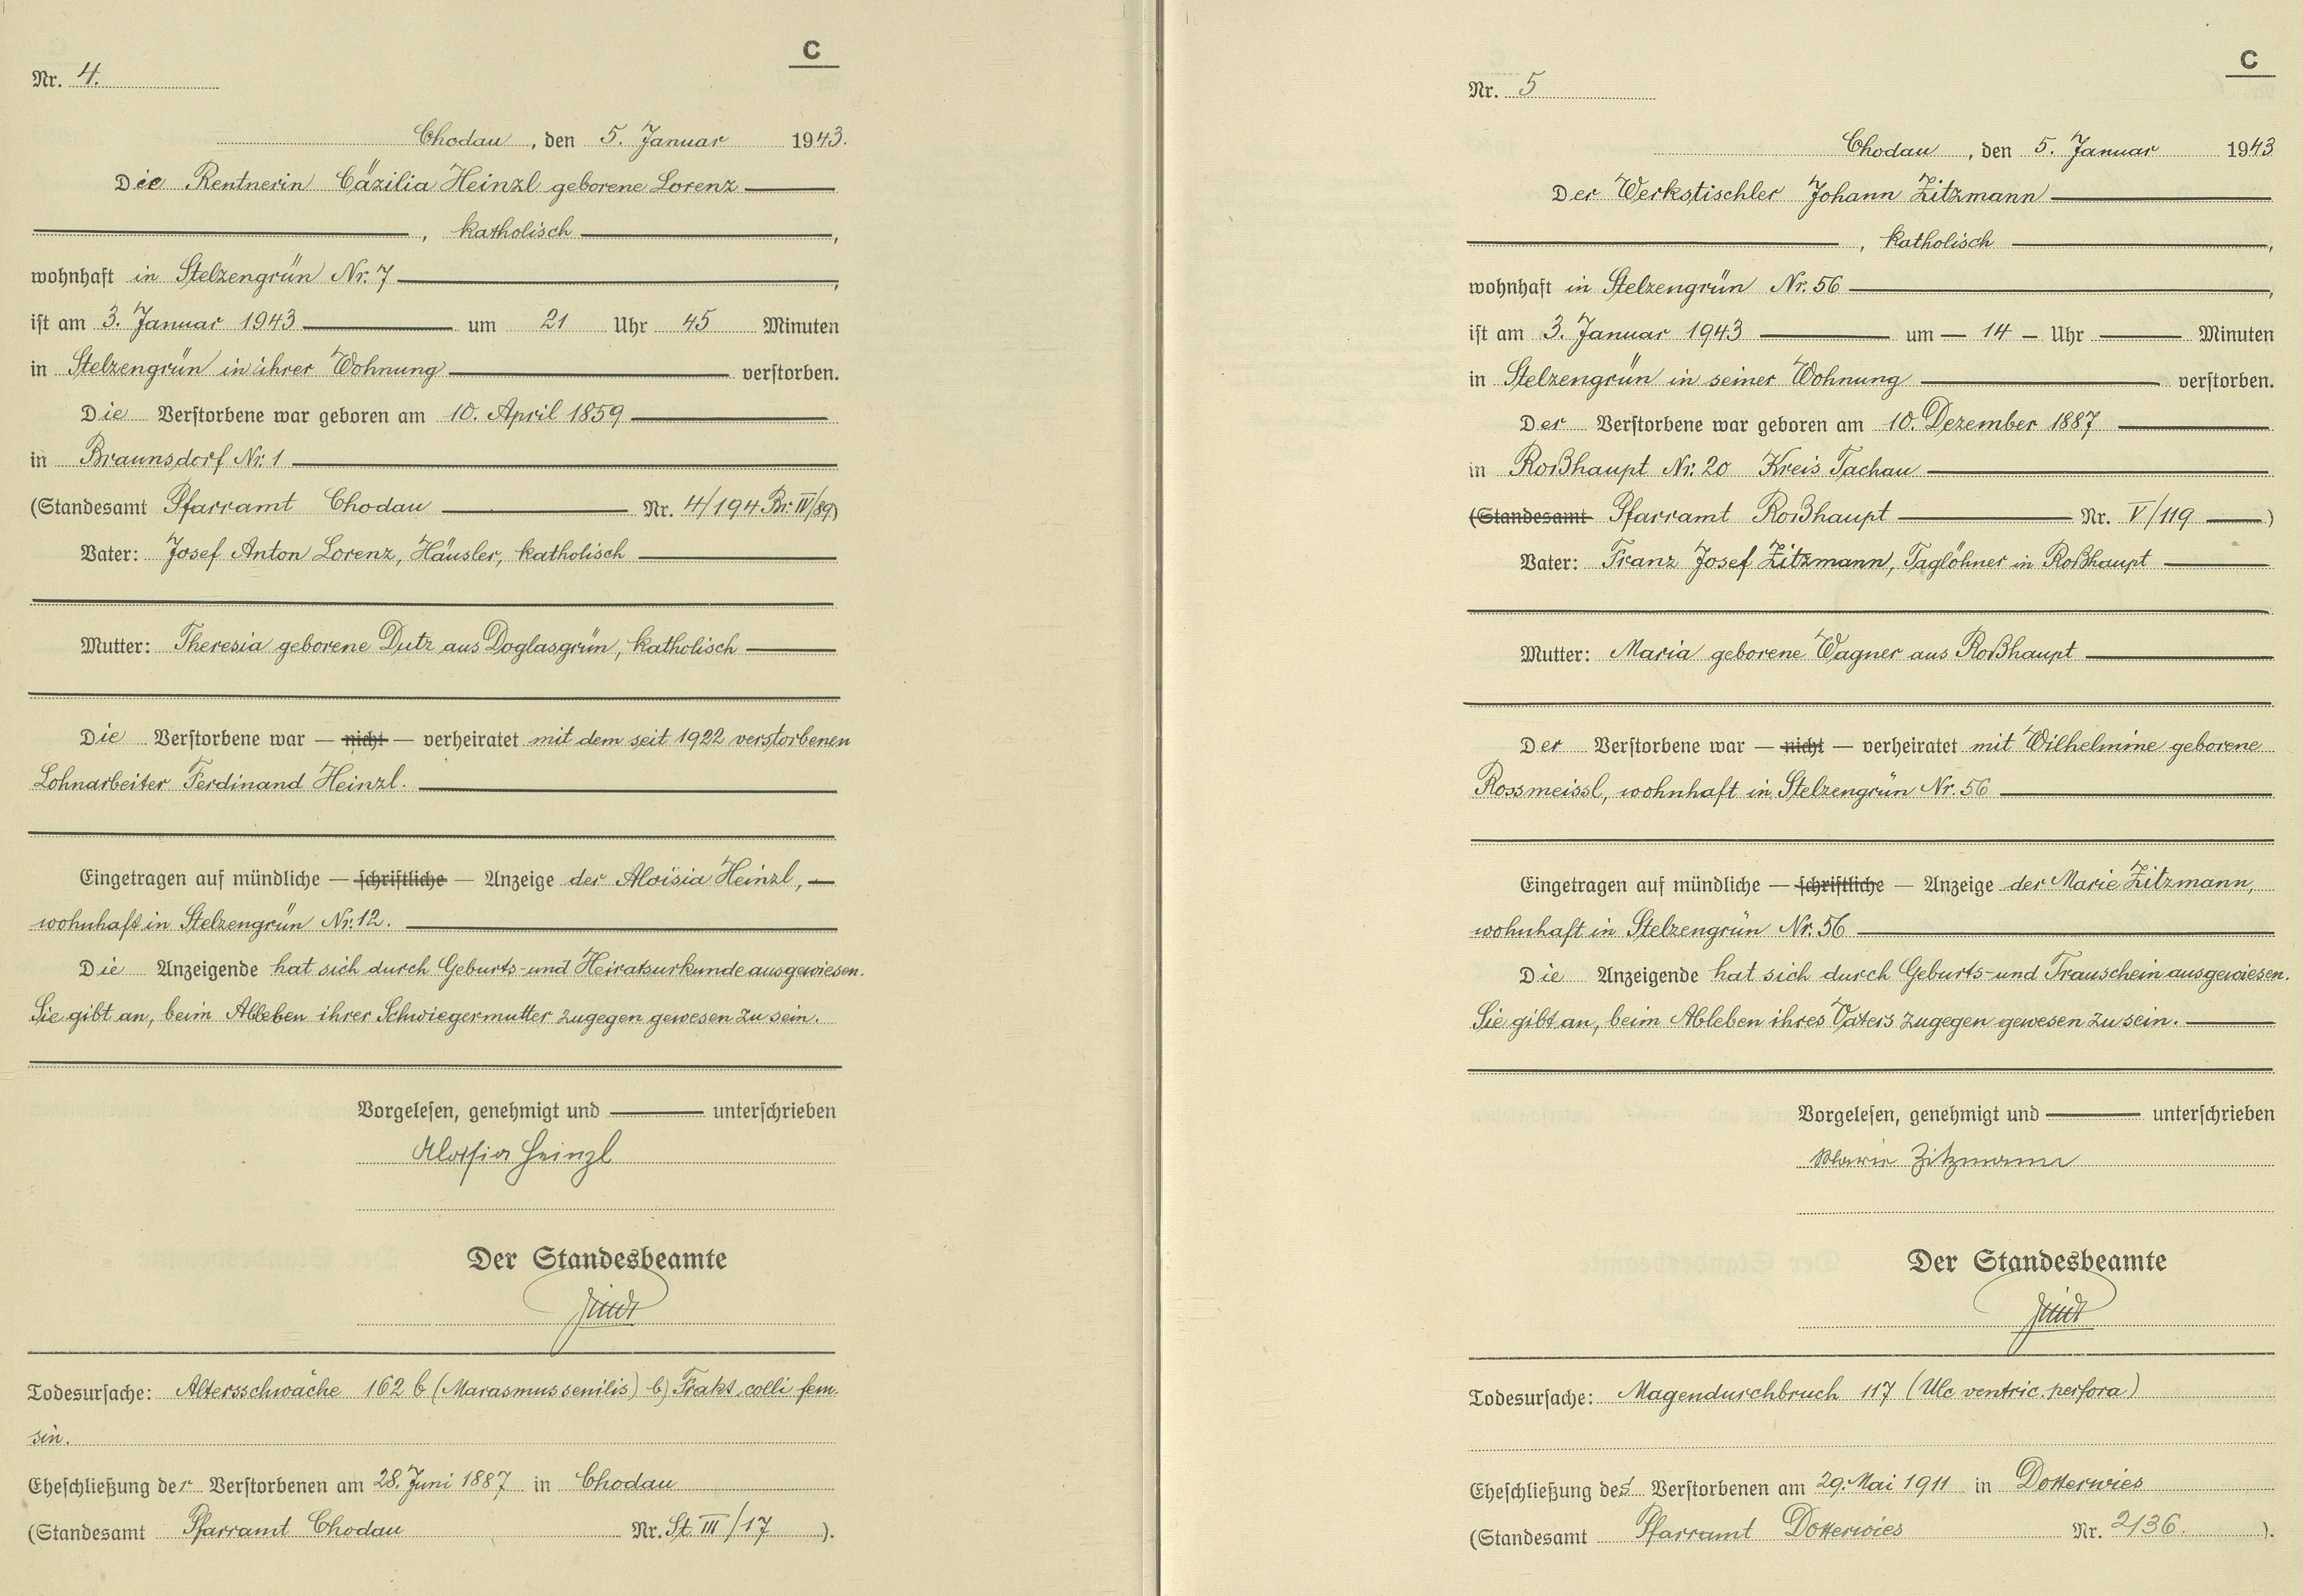 C
Nr. 4.
Chodau, den 5. Januar 1943.
Die Rentnerin Cäzilia Heinzl geborene Lorenz
, katholisch ,
wohnhaft in Stelzengrün Nr. 7 ,
ist am 3. Januar 1943 um 21 Uhr 45 Minuten
in Stelzengrün in ihrer Wohnung verstorben.
Die Verstorbene war geboren am 10. April 1859
in Braunsdorf Nr. 1
(Standesamt Pfarramt Chodau Nr. 4/194 Br. IV/89)
Vater: Josef Anton Lorenz, Häusler, katholisch
Mutter: Theresia geborene Dutz aus Doglasgrün, katholisch
Die Verstorbene war — nicht — verheiratet mit dem seit 1922 verstorbenen
Lohnarbeiter Ferdinand Heinzl.
Eingetragen auf mündliche — schriftliche — Anzeige der Aloisia Heinzl,
wohnhaft in Stelzengrün Nr. 12.
Die Anzeigende hat sich durch Geburts- und Heiratsurkunde ausgewiesen.
Sie gibt an, beim Ableben ihrer Schwiegermutter zugegen gewesen zu sein.
Vorgelesen, genehmigt und unterschrieben
Aloisia Heinzl
Der Standesbeamte
Todesursache: Altersschwäche 162 b (Marasmus senilis) b) Frakt. colli fem.
sin.
Eheschließung der Verstorbenen am 28. Juni 1887 in Chodau
(Standesamt Pfarramt Chodau Nr. St. III/17 ).
C
Nr. 5
Chodau, den 5. Januar 1943
Der Werkstischler Johann Zitzmann
, katholisch ,
wohnhaft in Stelzengrün Nr. 56 ,
ist am 3. Januar 1943 um — 14 — Uhr Minuten
in Stelzengrün in seiner Wohnung verstorben.
Der Verstorbene war geboren am 10. Dezember 1887
in Roßhaupt Nr. 20 Kreis Tachau
(Standesamt Pfarramt Roßhaupt Nr. V/119 )
Vater: Franz Josef Zitzmann, Taglöhner in Roßhaupt
Mutter: Maria geborene Wagner aus Roßhaupt
Der Verstorbene war — nicht — verheiratet mit Wilhelmine geborene
Rossmeissl, wohnhaft in Stelzengrün Nr. 56
Eingetragen auf mündliche — schriftliche — Anzeige der Marie Zitzmann,
wohnhaft in Stelzengrün Nr. 56
Die Anzeigende hat sich durch Geburts- und Trauschein ausgewiesen.
Sie gibt an, beim Ableben ihres Vaters zugegen gewesen zu sein.
Vorgelesen, genehmigt und unterschrieben
Marie Zitzmann
Der Standesbeamte
Todesursache: Magendurchbruch 117 (Ulc ventric. perfora)
Eheschließung des Verstorbenen am 29. Mai 1911 in Dotterwies
(Standesamt Pfarramt Dotterwies Nr. 2/36. ).